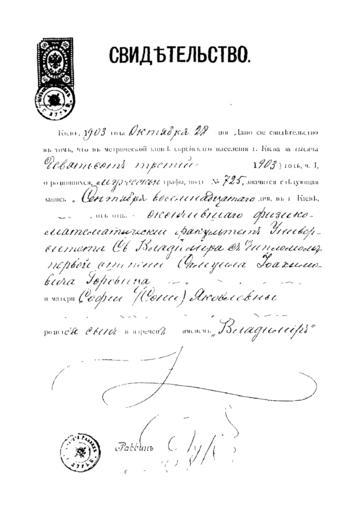 СВИДѢТЕЛЬСТВО.
Кіевъ, 1903 года Октября 28 дня Дано сіе свидѣтельство
въ томъ, что въ метрической книгѣ еврейскаго населенія г. Кіева за тысяча
Девятьсотъ третій 1903) годъ, ч. I,
о родившихся, мужеской графы, подъ № 725, значится слѣдующая
запись: „Сентября восемнадцатаго дня, въ г. Кіевѣ,
отъ окончившаго физико-
математическій факультетъ Универ-
ситета Св Владиміра съ дипломомъ
первой степени Самуила Іоахимо-
вича Горовица
и матери Софіи (Сони) Яковлевны
родился сынъ и нареченъ именемъ „Владиміръ“
Раввинъ